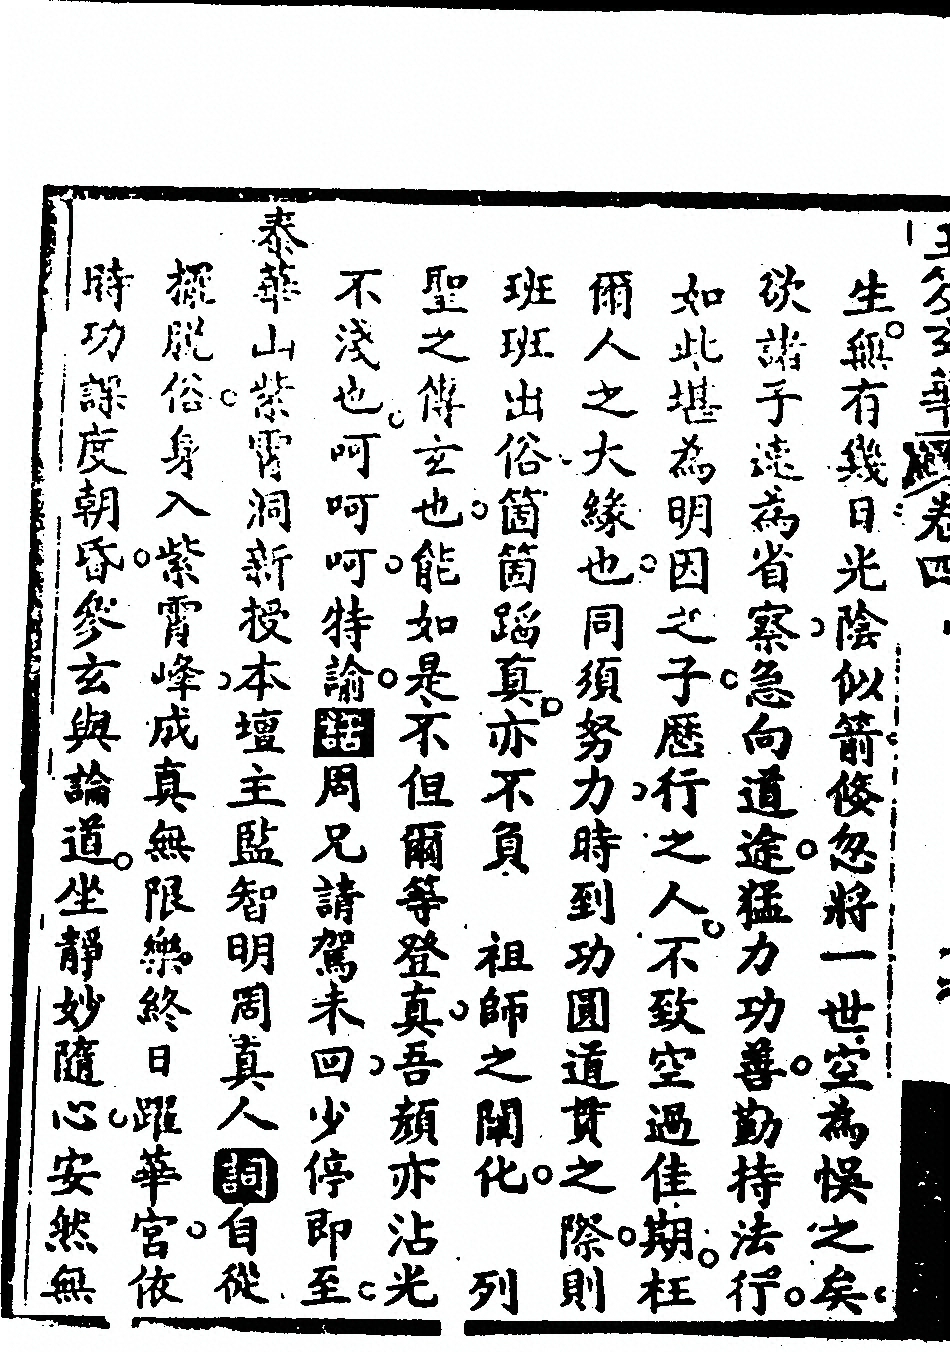 生無有幾日光陰似箭倐忽將一世空為悞之矣
欲諸子速為省察急向道途猛力功善勤持法行
如此堪為明因之子歷行之人不致空過佳期枉
爾人之大緣也同須努力時到功圓道貫之際則
班班出俗箇箇蹈真亦不負 祖師之闡化 列
聖之傳玄也能如是不但爾等登真吾顏亦沾光
不淺也呵呵呵特諭話周兄請駕未回少停即至
泰華山紫霄洞新授本壇主監智明周真人詞自從
擺脱俗身入紫霄峰成真無限樂終日躍華宮依
時功課度朝昏參玄與論道坐靜妙隨心安然無
卷四